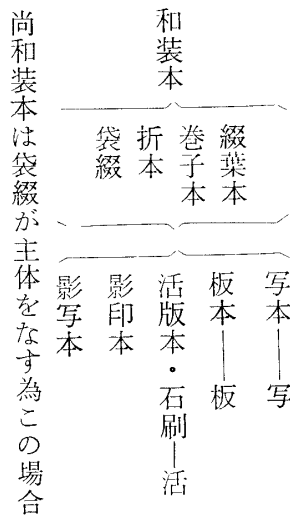 和装本
綴葉本
巻子本
折本
袋綴
写本——写
板本——板
活版本・石刷—活
影印本
影写本
尚和装本は袋綴が主体をなす為この場合